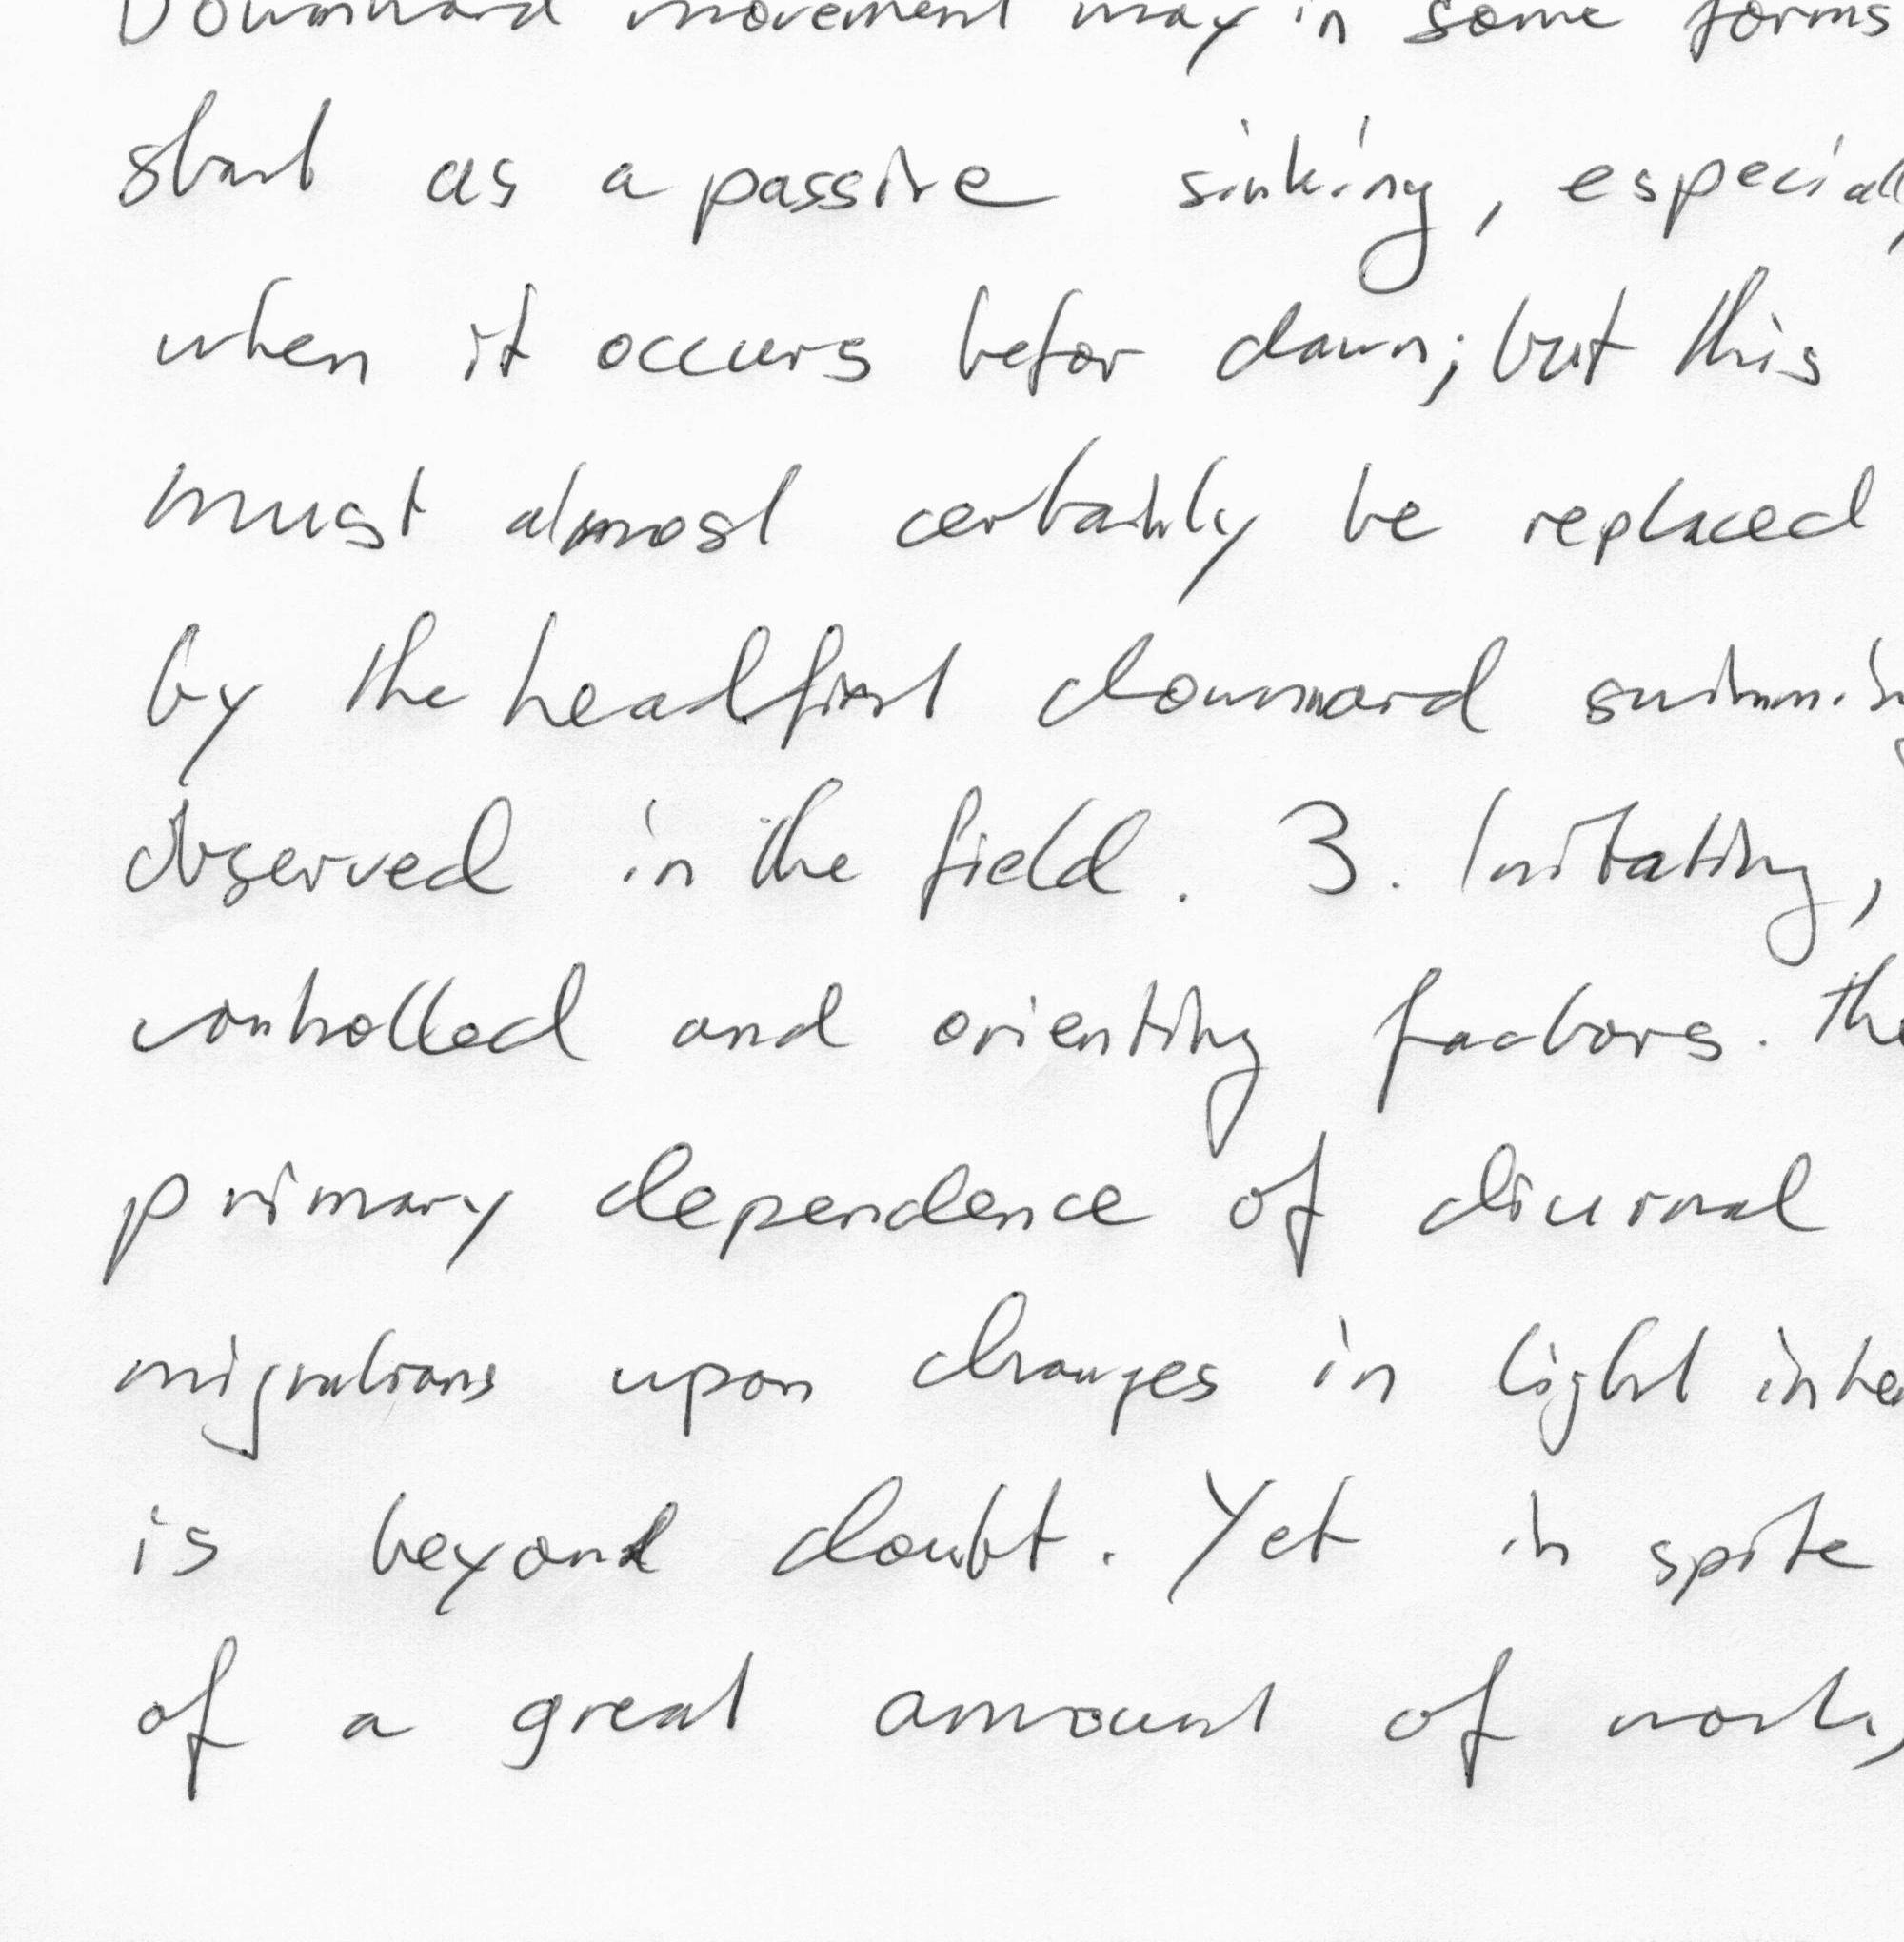 Downward movement may in some forms
start as a passive sinking, especially
when it occurs befor dawn; but this
must almost certainly be replaced
by the headfirst downward swimming
observed in the field. 3. Initating,
controlled and orienting factors. The
primary dependence of diurnal
migrations upon changes in light inte
is beyond doubt. Yet in spite
of a great amount of work,